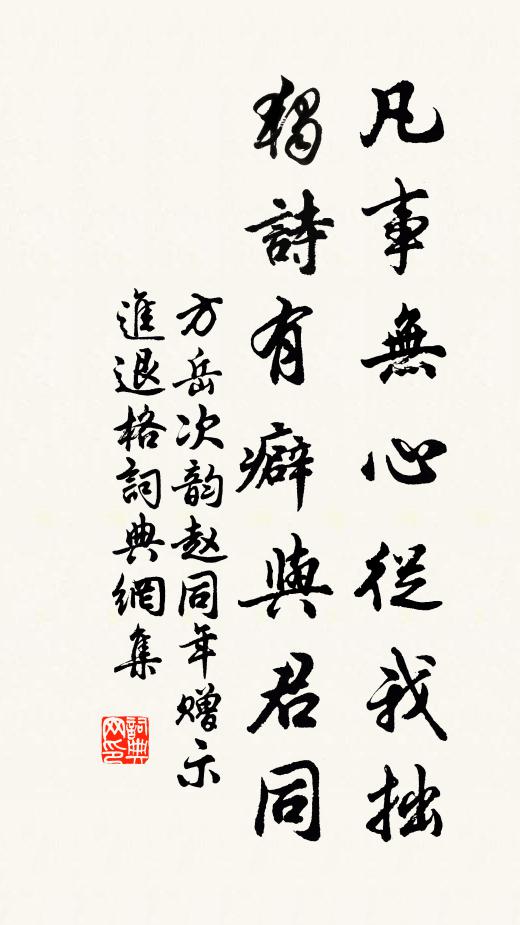 凡事無心從我拙
獨詩有癖與君同
方岳次韵赵同年赠示
進退格詞典網集
詞典网印